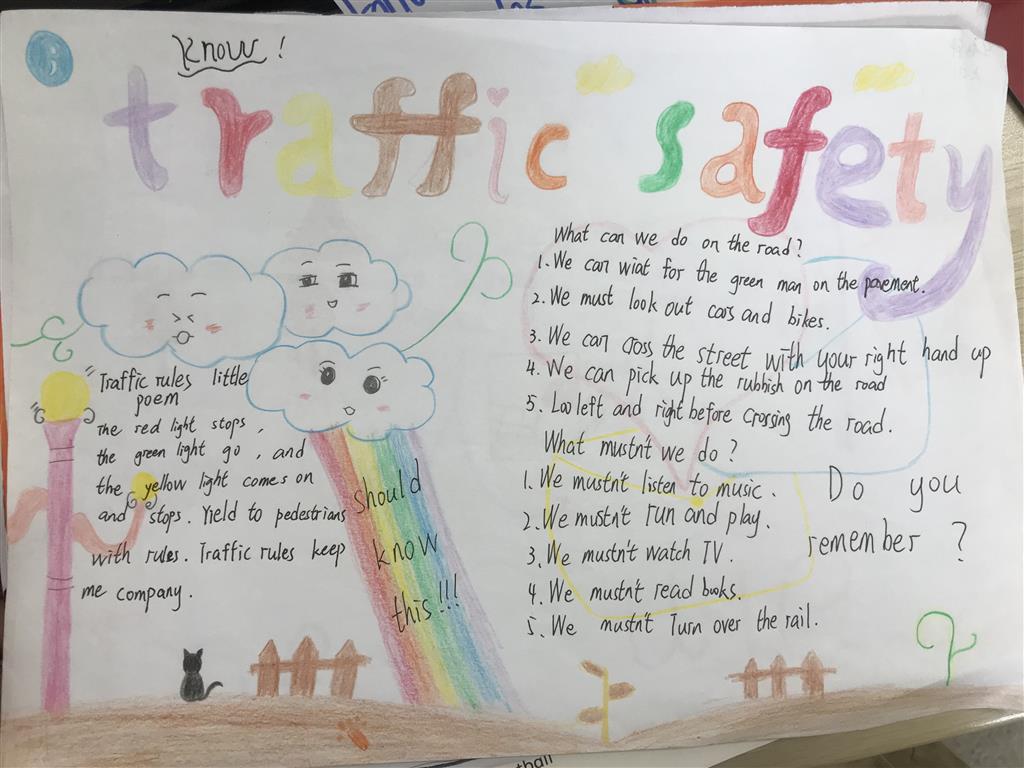 Know!
traffic safety
Traffic rules little
poem
The red light stops,
the green light go, and
the yellow light comes on
and stops. Yield to pedestrians
with rules. Traffic rules keep
me company.
should
know
this!!!
What can we do on the road?
1. We can wiat for the green man on the pavement.
2. We must look out cars and bikes.
3. We can cross the street with your right hand up
4. We can pick up the rubbish on the road
5. Loo left and right before crossing the road.
What mustn't we do?
1. We mustn't listen to music.
2. We mustn't run and play.
3. We mustn't watch TV.
4. We mustn't read books.
5. We mustn't Turn over the rail.
Do you
remember?